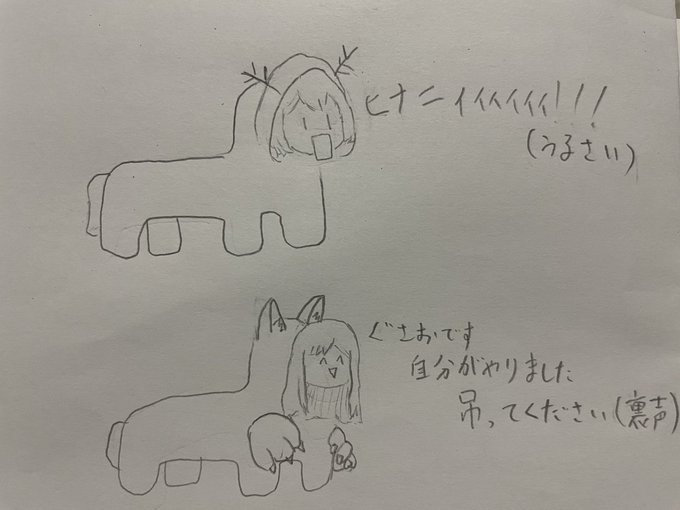 ヒナニィィィィィィ!!!
(うるさい)
ぐさおです
自分がやりました
吊ってください(裏声)